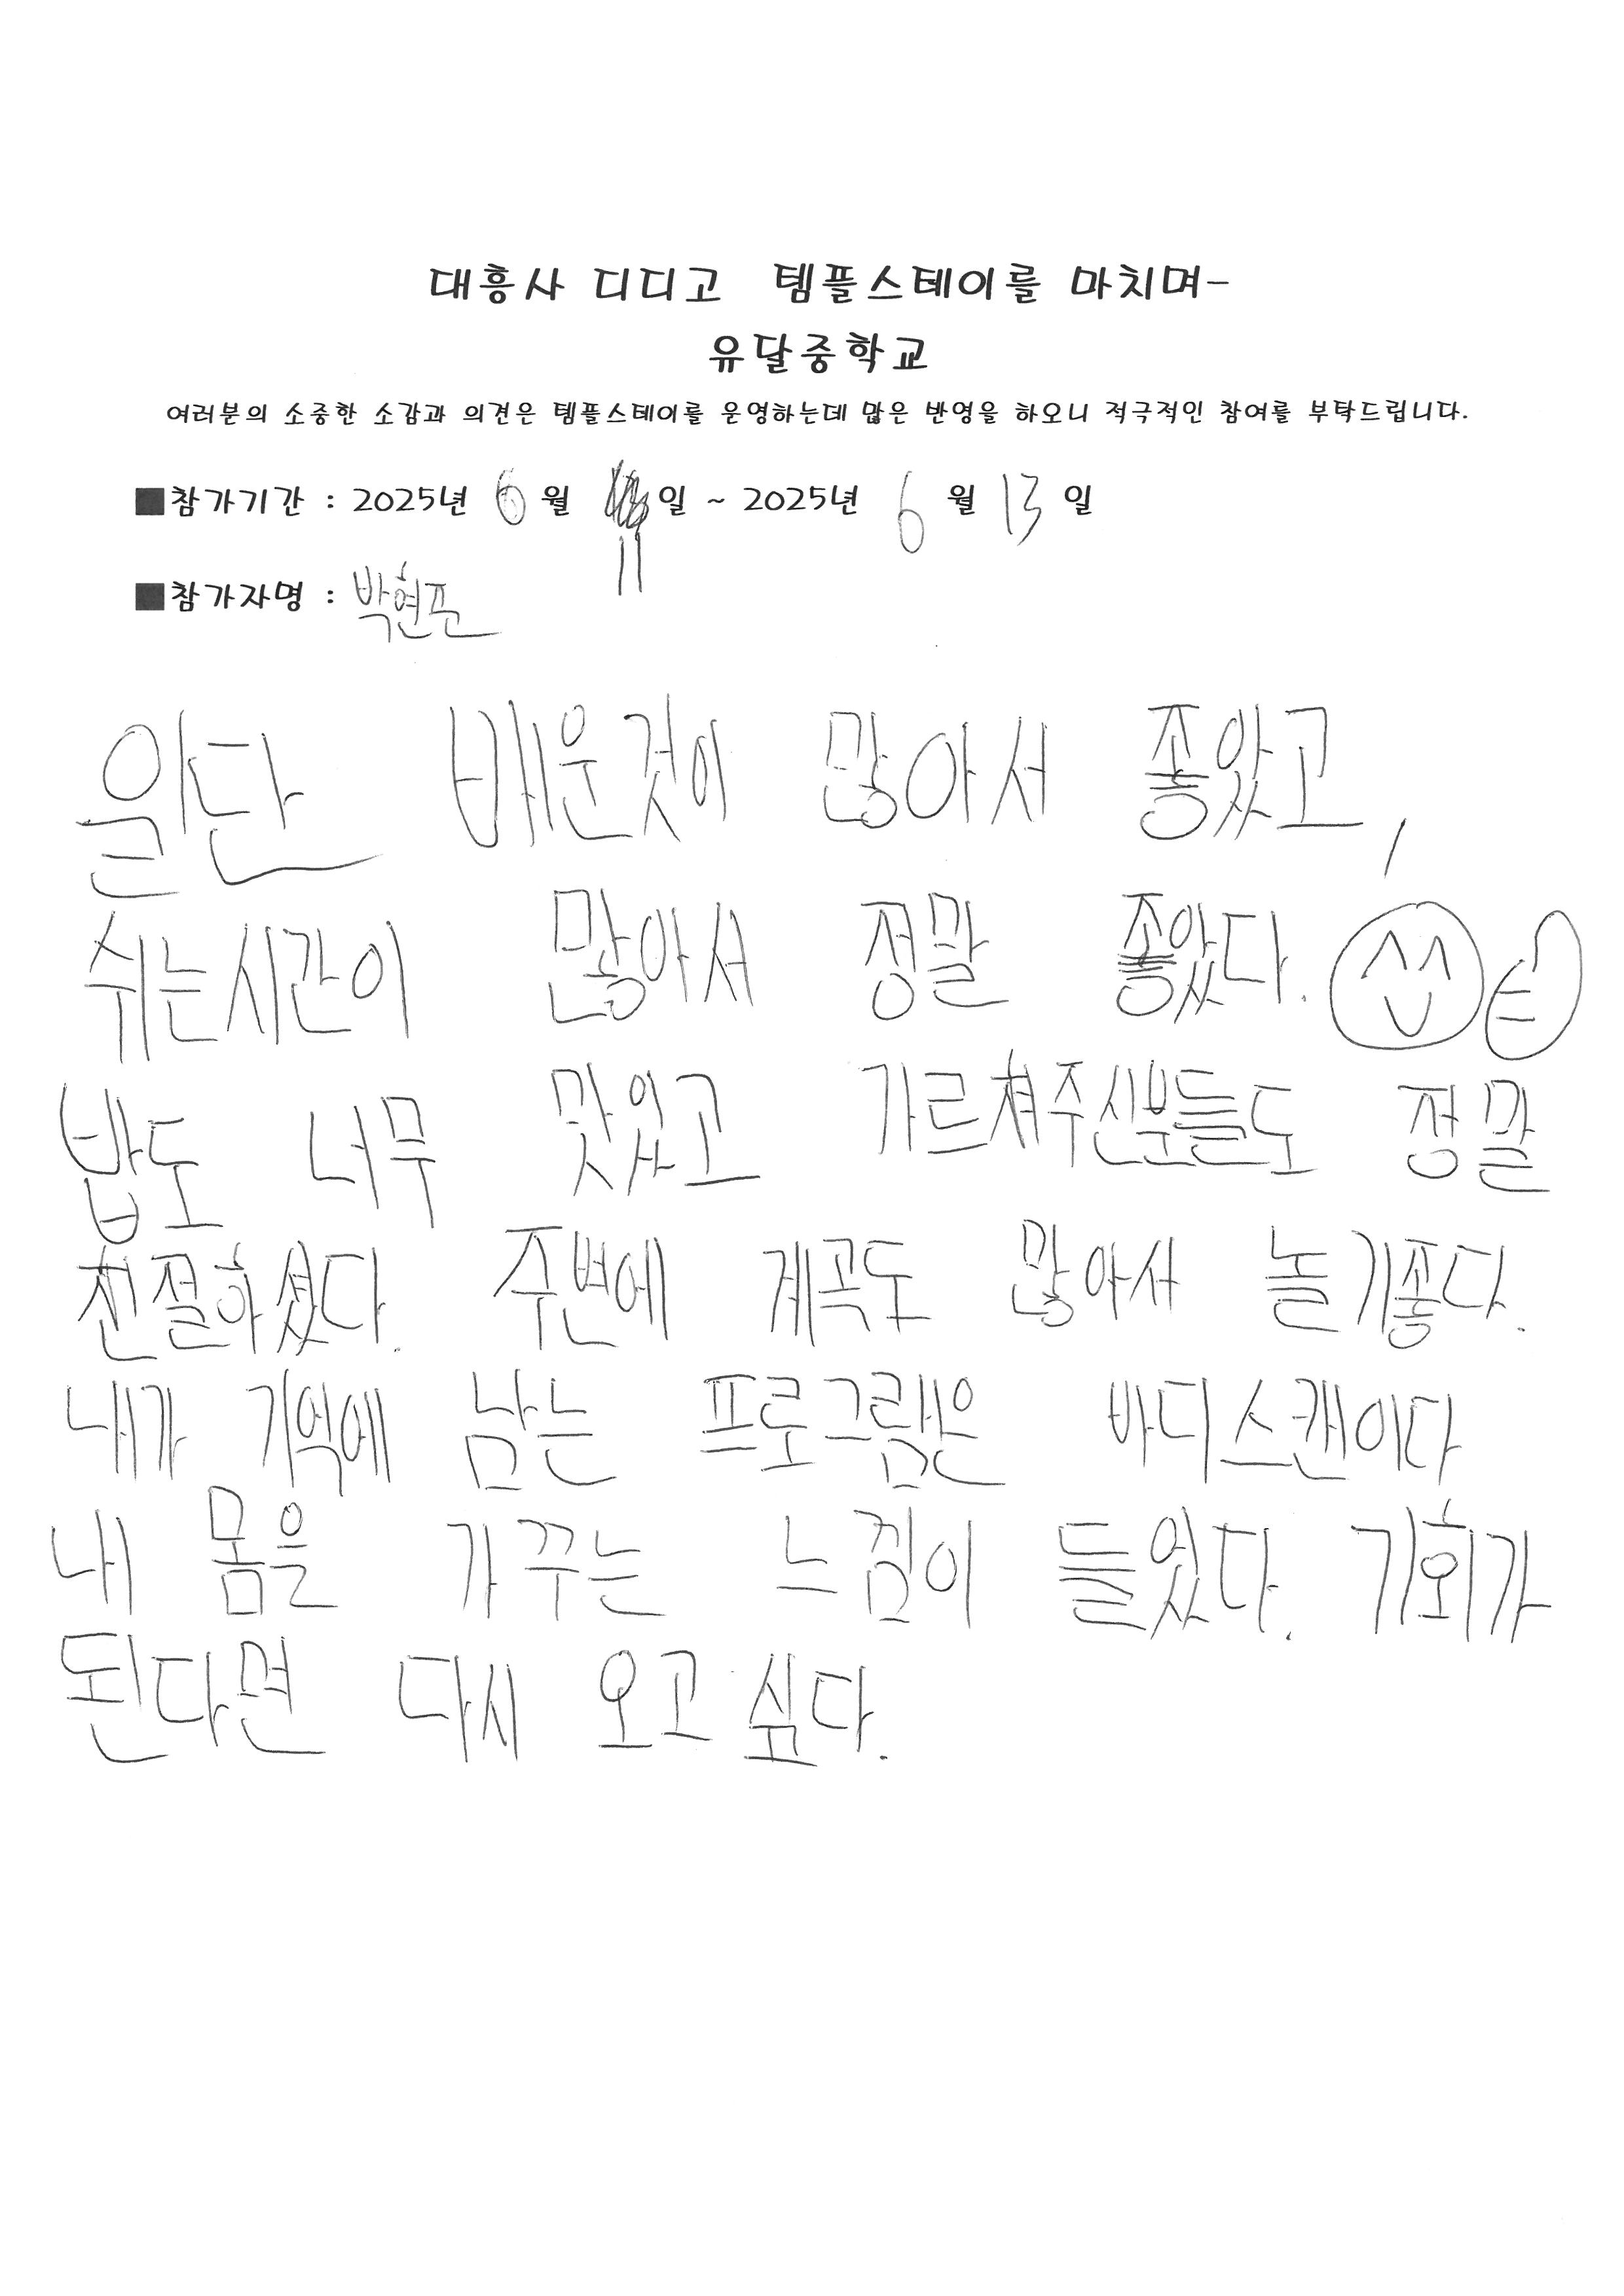 대흥사 디디고 템플스테이를 마치며-
유달중학교
여러분의 소중한 소감과 의견은 템플스테이를 운영하는데 많은 반영을 하오니 적극적인 참여를 부탁드립니다.
■참가기간 : 2025년 6월 11일 ~ 2025년 6월 13일
■참가자명 : 박현준
일단 배운것이 많아서 좋았고,
쉬는시간이 많아서 정말 좋았다.
밥도 너무 맛있고 가르쳐주신분들도 정말
친절하셨다. 주변에 계곡도 많아서 놀기좋다.
내가 기억에 남는 프로그램은 바디스캔이다
내 몸을 가꾸는 느낌이 들었다. 기회가
된다면 다시 오고 싶다.